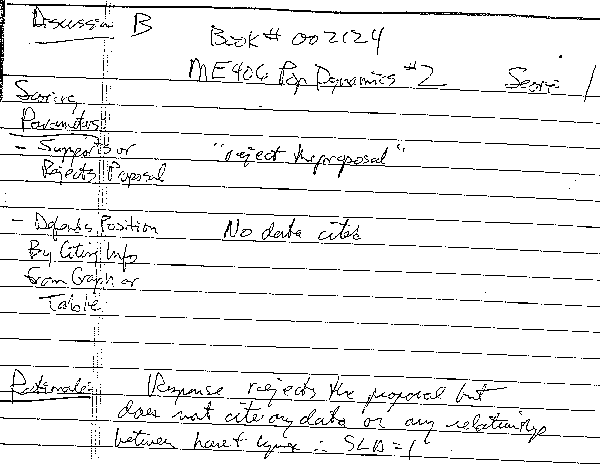 Discussion B
Book # 002124
ME406 Pop Dynamics #2 Score 1
Scoring
Parameters
- Supports or "reject the proposal"
Rejects Proposal
- Defends Position No data cited
By Citing Info
From Graph or
Table
Rationale: Response rejects the proposal but
does not cite any data or any relationships
between hare + lynx ∴ SLB = 1